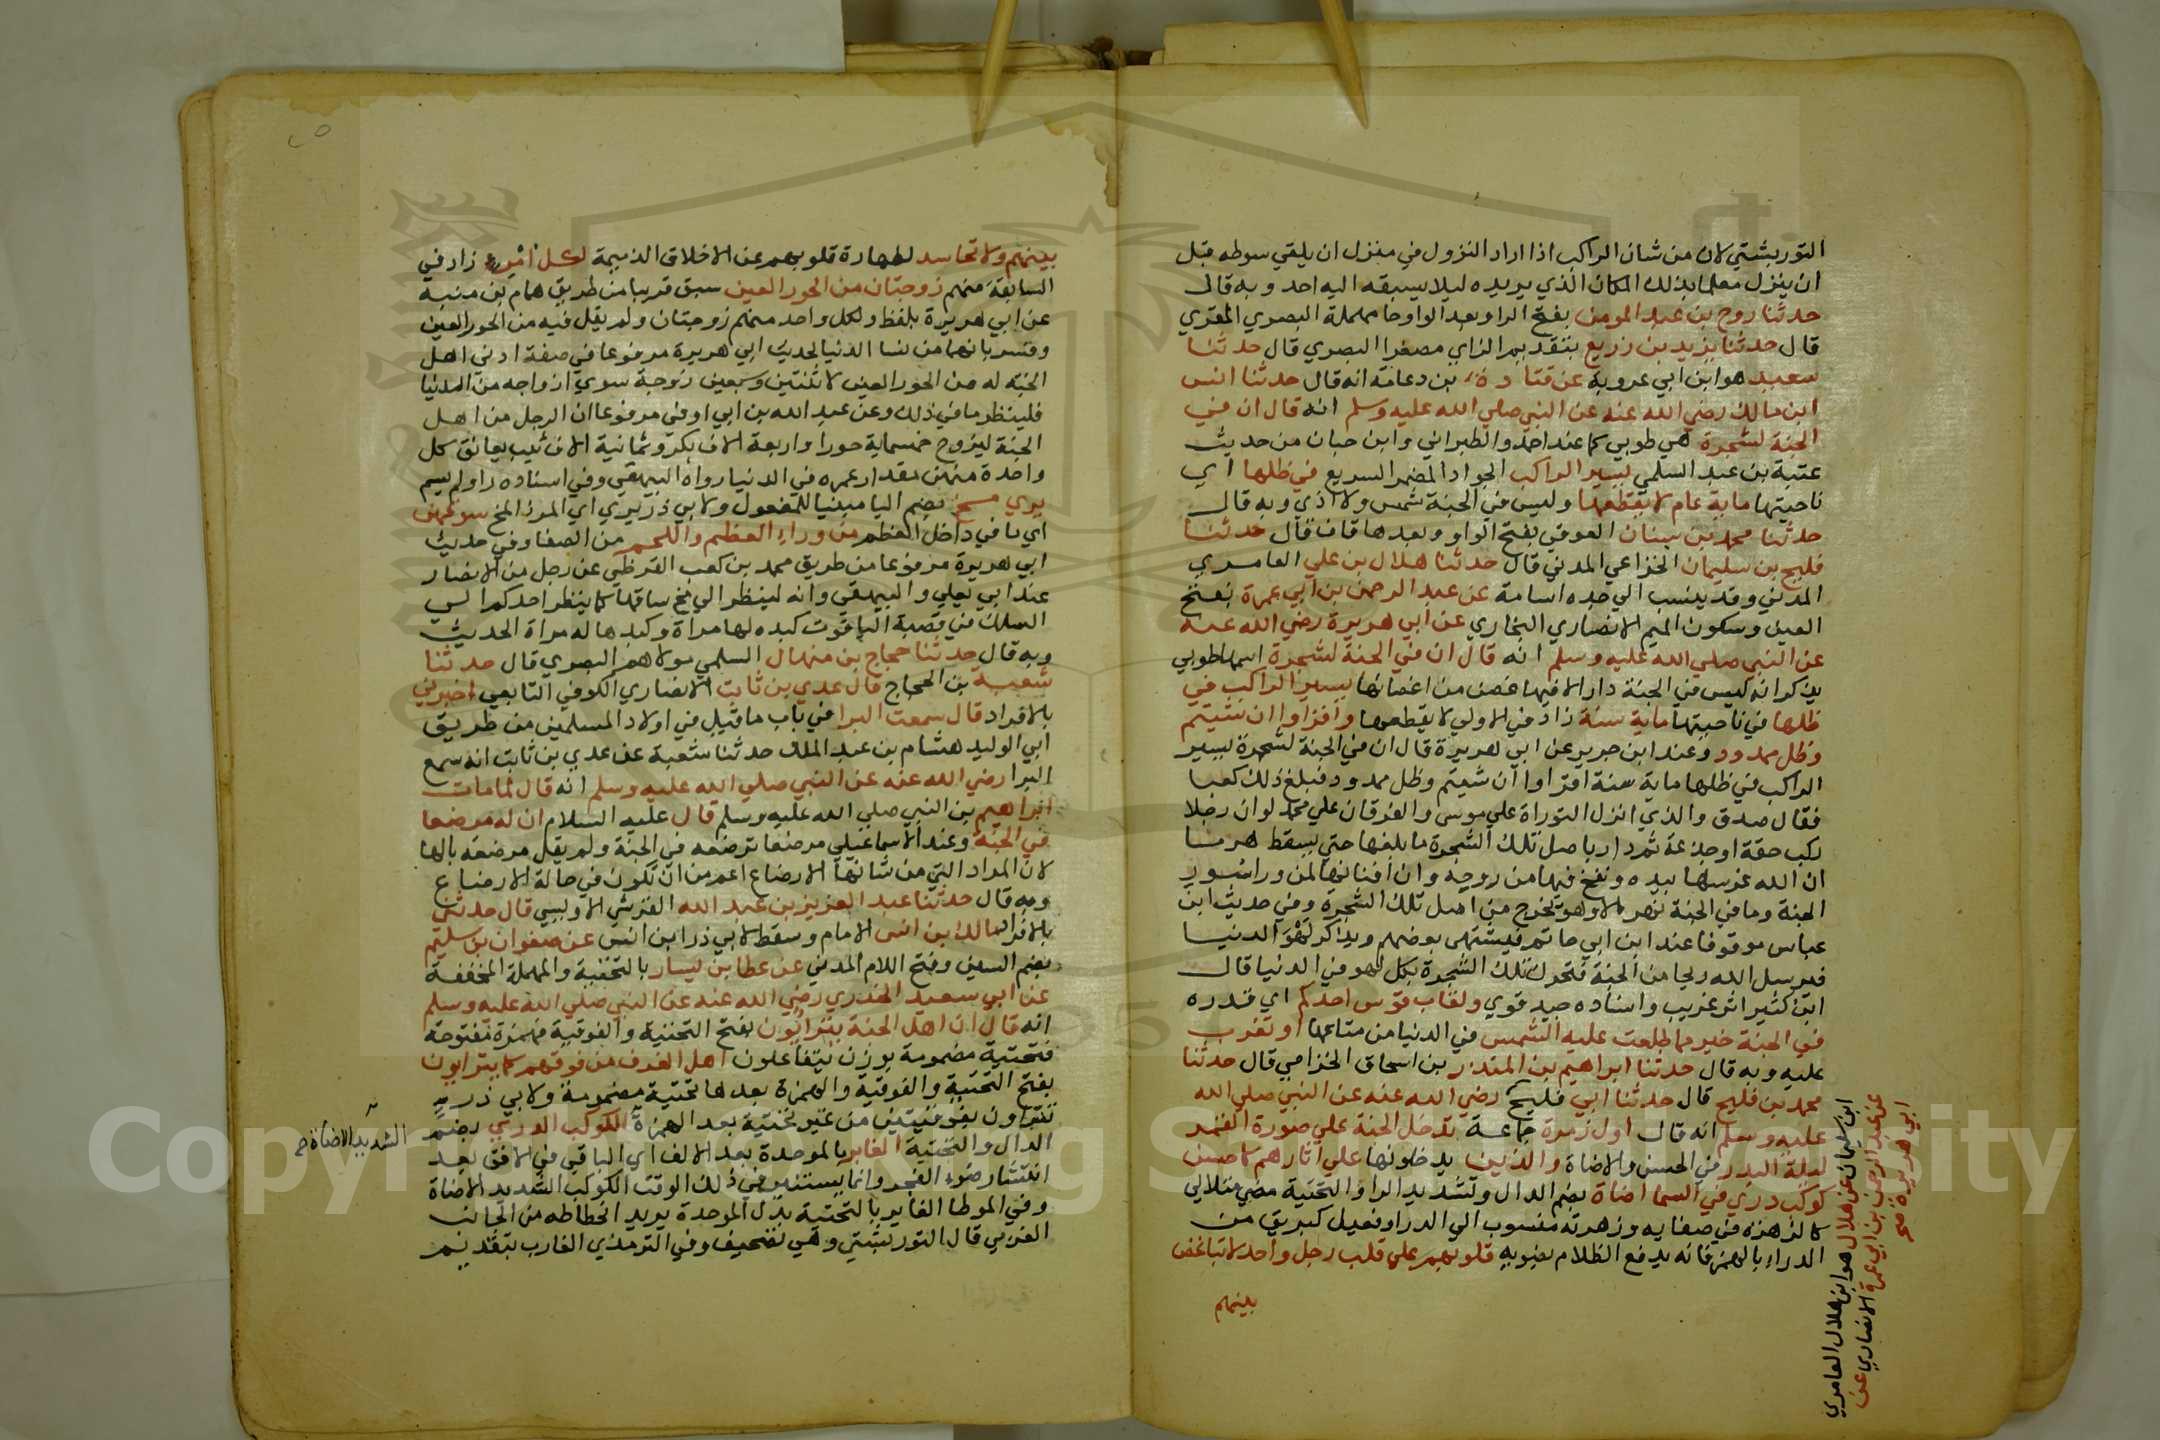 التوربشتي لان من شان الراكب اذا اراد النزول في منزل ان يلقي سوطه قبل
ان ينزل معلما بذلك المكان الذي يريده ليلا يسبقه اليه احد وبه قال
حدثنا روح بن عبد المومن بفتح الراو بعد الواو حا مهملة البصري المقري
قال حدثنا يزيد بن زريع بتقديم الزاي مصغرا البصري قال حدثنا
سعيد هو ابن ابي عروبة عن قتادة بن دعامة انه قال حدثنا انس
ابن مالك رضي الله عنه عن النبي صلي الله عليه وسلم انه قال ان في
الجنة لشجرة هي طوبي كما عند احمد والطبراني وابن حبان من حديث
عتبة بن عبد السلمي يسير الراكب الجواد المضمر السريع في ظلها اي
ناحيتها ماية عام لا يقطعها وليس في الجنة شمس ولا اذي وبه قال
حدثنا محمد بن سنان العوقي بفتح الواو وبعدها قاف قال حدثنا
فليح بن سليمان الخزاعي المدني قال حدثنا هلال بن علي العامري
المدني وقد ينسب الي جده اسامة عن عبد الرحمن بن ابي عمرة بفتح
العين وسكون الميم الانصاري البخاري عن ابي هريرة رضي الله عنه
عن النبي صلي الله عليه وسلم انه قال ان في الجنة لشجرة اسمها طوبي
يذكر انه ليس في الجنة دار الا فيها غصن من اغصانها يسير الراكب في
ظلها في ناحيتها ماية سنة زاد في الاولي لا يقطعها واقراوا ان شيتم
وظل ممدود وعند ابن جرير عن ابي هريرة قال ان في الجنة لشجرة يسير
الراكب في ظلها ماية سنة اقراوا ان شيتم وظل ممدود فبلغ ذلك كعبا
فقال صدق والذي انزل التوراة علي موسي والفرقان علي محمد لو ان رجلا
ركب حقة او جذعة ثم دار باصل تلك الشجرة ما بلغها حتي يسقط هرما
ان الله غرسها بيده ونفخ فيها من روحه وان افنانها لمن ورا سور
الجنة وما في الجنة نهر الا وهو يخرج من اصل تلك الشجرة وفي حديث ابن
عباس موقوفا عند ابن ابي حاتم فيشتهي بعضهم ويذكر لهو الدنيا
فيرسل الله ريحا من الجنة فتحرك تلك الشجرة بكل لهو في الدنيا قال
ابن كثير اثر غريب واسناده جيد قوي ولقاب قوس احدكم اي قدره
في الجنة خير مما طلعت عليه الشمس في الدنيا من متاعها او تغرب
عليه وبه قال حدثنا ابراهيم بن المنذر بن اسحاق الخزامي قال حدثنا
محمد بن فليح قال حدثنا ابي فليح رضي الله عنه عن النبي صلي الله
عليه وسلم انه قال اول زمرة جماعة تدخل الجنة علي صورة القمر
ليلة البدر في الحسن والاضاة والذين يدخلونها علي اثارهم كاحسن
كوكب دري في السما اضاة بضم الدال وتشديد الرا والتحتية مضي متلالي
كالزهرة في صفايه وزهرته منسوب الي الدر او فعيل كبريق من
الدراء بالهمز فانه يدفع الظلام بضويه قلوبهم علي قلب رجل واحد لا تباغض
بينهم
ابن سليمان عن هلال هو ابن هلال العامري
عن عبد الرحمن بن ابي عمرة الانصاري عن
ابي هريرة صح
بينهم ولا تحاسد لطهارة قلوبهم عن الاخلاق الذميمة لكل امري زاد في
السابقة منهم زوجتان من الحور العين سبق قريبا من طريق همام بن منبه
عن ابي هريرة بلفظ ولكل واحد منهم زوجتان ولم يقل فيه من الحور العين
وفسر بانهما من نسا الدنيا لحديث ابي هريرة مرفوعا في صفة ادني اهل
الجنة له من الحور العين لاثنتين وسبعين زوجة سوي ازواجه من الدنيا
فلينظر ما في ذلك وعن عبد الله بن ابي اوفي مرفوعا ان الرجل من اهل
الجنة ليزوج خمسماية حورا واربعة الاف بكر وثمانية الاف ثيب يعانق كل
واحدة منهن مقدار عمره في الدنيا رواه البيهقي وفي اسناده راو لم يسم
يري مخ بضم اليا مبنيا للمفعول ولابي ذر يري اي المرء المخ سوقهن
اي ما في داخل العظم من وراء العظم واللحم من الصفا وفي حديث
ابي هريرة مرفوعا من طريق محمد بن كعب القرظي عن رجل من الانصار
عند ابي يعلي والبيهقي وانه لينظر الي مخ ساقها كما ينظر احدكم الي
السلك في قصبة الياقوت كبده لها مراة وكبدها له مراة الحديث
وبه قال حدثنا حجاج بن منهال السلمي مولاهم البصري قال حدثنا
شعبة بن الحجاج قال عدي بن ثابت الانصاري الكوفي التابعي اخبرني
بالافراد قال سمعت البرا في باب ما قيل في اولاد المسلمين من طريق
ابي الوليد هشام بن عبد الملك حدثنا شعبة عن عدي بن ثابت انه سمع
البرا رضي الله عنه عن النبي صلي الله عليه وسلم انه قال لما مات
ابراهيم بن النبي صلي الله عليه وسلم قال عليه السلام ان له مرضعا
في الجنة وعند الاسماعيلي مرضعا ترضعه في الجنة ولم يقل مرضعة بالها
لان المراد التي من شانها الارضاع اعم من ان تكون في حالة الارضاع
وبه قال حدثنا عبد العزيز بن عبد الله القرشي الاويسي قال حدثني
بالافراد مالك بن انس الامام وسقط لابي ذر ابن انس عن صفوان بن سليم
بضم السين وفتح اللام المدني عن عطا بن يسار بالتحتية والمهملة المخففة
عن ابي سعيد الخدري رضي الله عنه عن النبي صلي الله عليه وسلم
انه قال ان اهل الجنة يتراييون بفتح التحتية والفوقية فهمزة مفتوحة
فتحتية مضمومة بوزن يتفاعلون اهل الغرف من فوقهم كما يترايون
بفتح التحتية والفوقية والهمزة بعدها تحتية مضمومة ولابي ذر
تتراون بفوقيتين من غير تحتية بعد الهمزة الكوكب الدري بضم
الدال والتحتية الغابر بالموحدة بعد الالف اي الباقي في الافق بعد
انتشار ضوء الفجر وانما يستنير في ذلك الوقت الكوكب الشديد الاضاة
وفي الموطا الغاير بالتحتية بدل الموحدة يريد انحطاطه من الجانب
الغربي قال التوربشتي وهي تصحيف وفي الترمذي الغارب بتقديم
الشديد الاضاة صح